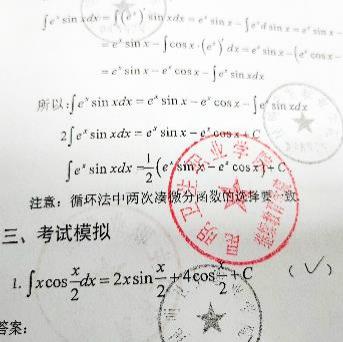 ∫eˣ sin xdx = ∫(eˣ)′ sin xdx = eˣ sin x − ∫eˣ d sin x = eˣ sin x −
= eˣ sin x − ∫cos x · (eˣ)′ dx = eˣ sin x − (eˣ cos x −
= eˣ sin x − eˣ cos x − ∫eˣ sin xdx
所以:∫eˣ sin xdx = eˣ sin x − eˣ cos x − ∫eˣ sin xdx
2∫eˣ sin xdx = eˣ sin x − eˣ cos x + C
∫eˣ sin xdx = 1/2 (eˣ sin x − eˣ cos x) + C
注意：循环法中两次凑微分函数的选择要一致.
三、考试模拟
1. ∫x cos x/2 dx = 2x sin x/2 + 4cos x/2 + C (√)
答案: